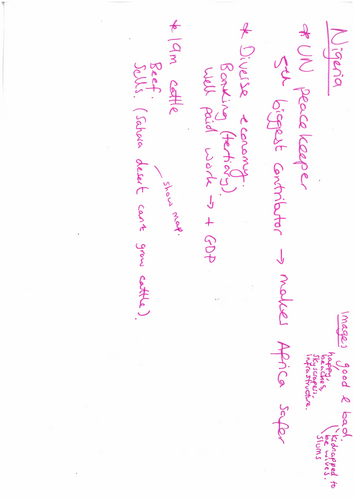 Nigeria
* UN peacekeeper
5th biggest contributor → makes Africa safer
* Diverse economy.
Banking (tertiary).
Well paid work → + GDP
* 19m cattle
Beef.
Sells. (Sahara desert can't grow cattle).
show map.
Images good & bad.
happy,
beaches,
skyscrapers,
infrastructure.
kidnapped to
be wives.
slums